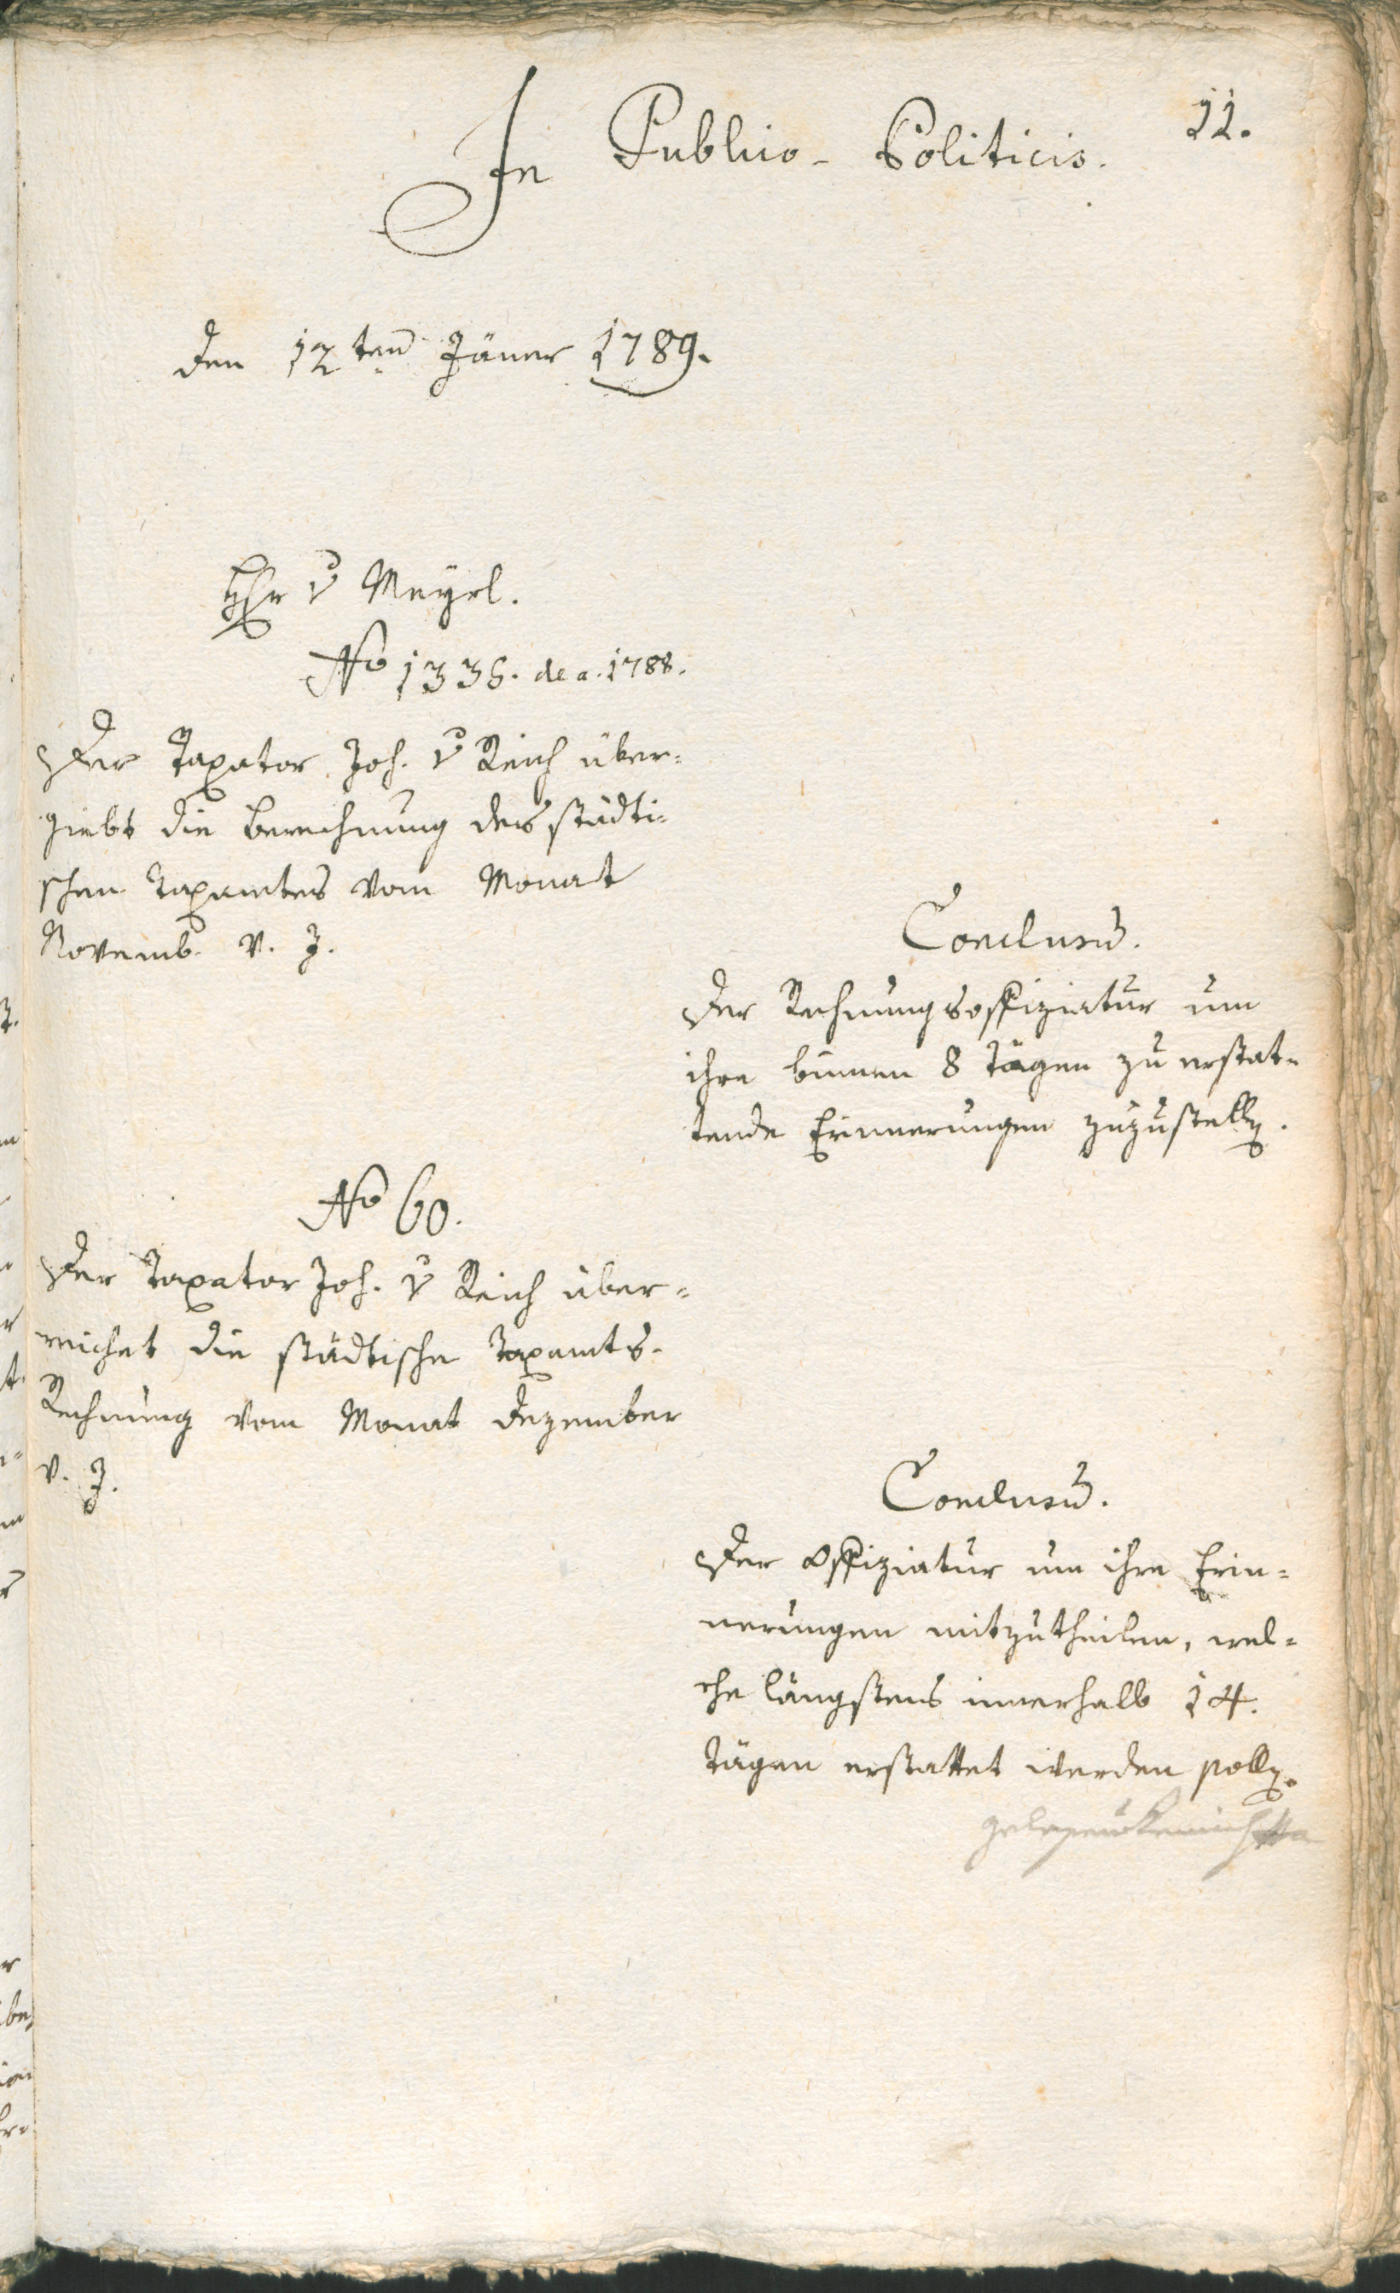 11.
In Publico-Politicis.
den 12ten Jäner 1789.
Hr v Meyrl.
No 1336. de a. 1788.
Der Taxator Joh. v Reich über-
giebt die Berechnung des städti-
schen Taxamtes vom Monat
Novemb. v. J.
Conclusum.
Der Rechnungsoffiziatur um
ihre binnen 8 Tägen zu erstat-
tende Erinnerungen zuzustellen.
No 60.
Der Taxator Joh. v Reich über-
reichet die städtische Taxamts-
Rechnung vom Monat Dezember
v. J.
Conclusum.
Der Offiziatur um ihre Erin-
nerungen mitzutheilen, wel-
che längstens innerhalb 14.
Tägen erstattet werden sollen.